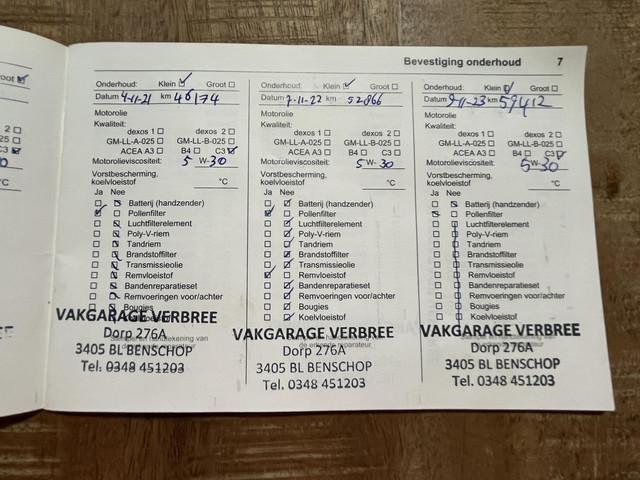 Bevestiging onderhoud 7
Onderhoud: Klein Groot
Datum 4-11-21 km 46174
Motorolie
Kwaliteit:
dexos 1 dexos 2
GM-LL-A-025 GM-LL-B-025
ACEA A3 B4 C3
Motorolieviscositeit: 5 W-30
Vorstbescherming,
koelvloeistof °C
Ja Nee
Batterij (handzender)
Pollenfilter
Luchtfilterelement
Poly-V-riem
Tandriem
Brandstoffilter
Transmissieolie
Remvloeistof
Bandenreparatieset
Remvoeringen voor/achter
Bougies
VAKGARAGE VERBREE
Dorp 276A
3405 BL BENSCHOP
Tel. 0348 451203
Onderhoud: Klein Groot
Datum 7-11-22 km 52866
Motorolie
Kwaliteit:
dexos 1 dexos 2
GM-LL-A-025 GM-LL-B-025
ACEA A3 B4 C3
Motorolieviscositeit: 5 W-30
Vorstbescherming,
koelvloeistof °C
Ja Nee
Batterij (handzender)
Pollenfilter
Luchtfilterelement
Poly-V-riem
Tandriem
Brandstoffilter
Transmissieolie
Remvloeistof
Bandenreparatieset
Remvoeringen voor/achter
Bougies
Koelvloeistof
VAKGARAGE VERBREE
Dorp 276A
3405 BL BENSCHOP
Tel. 0348 451203
Onderhoud: Klein Groot
Datum 9-11-23 km 59412
Motorolie
Kwaliteit:
dexos 1 dexos 2
GM-LL-A-025 GM-LL-B-025
ACEA A3 B4 C3
Motorolieviscositeit: 5 W-30
Vorstbescherming,
koelvloeistof °C
Ja Nee
Batterij (handzender)
Pollenfilter
Luchtfilterelement
Poly-V-riem
Tandriem
Brandstoffilter
Transmissieolie
Remvloeistof
Bandenreparatieset
Remvoeringen voor/achter
Bougies
Koelvloeistof
VAKGARAGE VERBREE
Dorp 276A
3405 BL BENSCHOP
Tel. 0348 451203